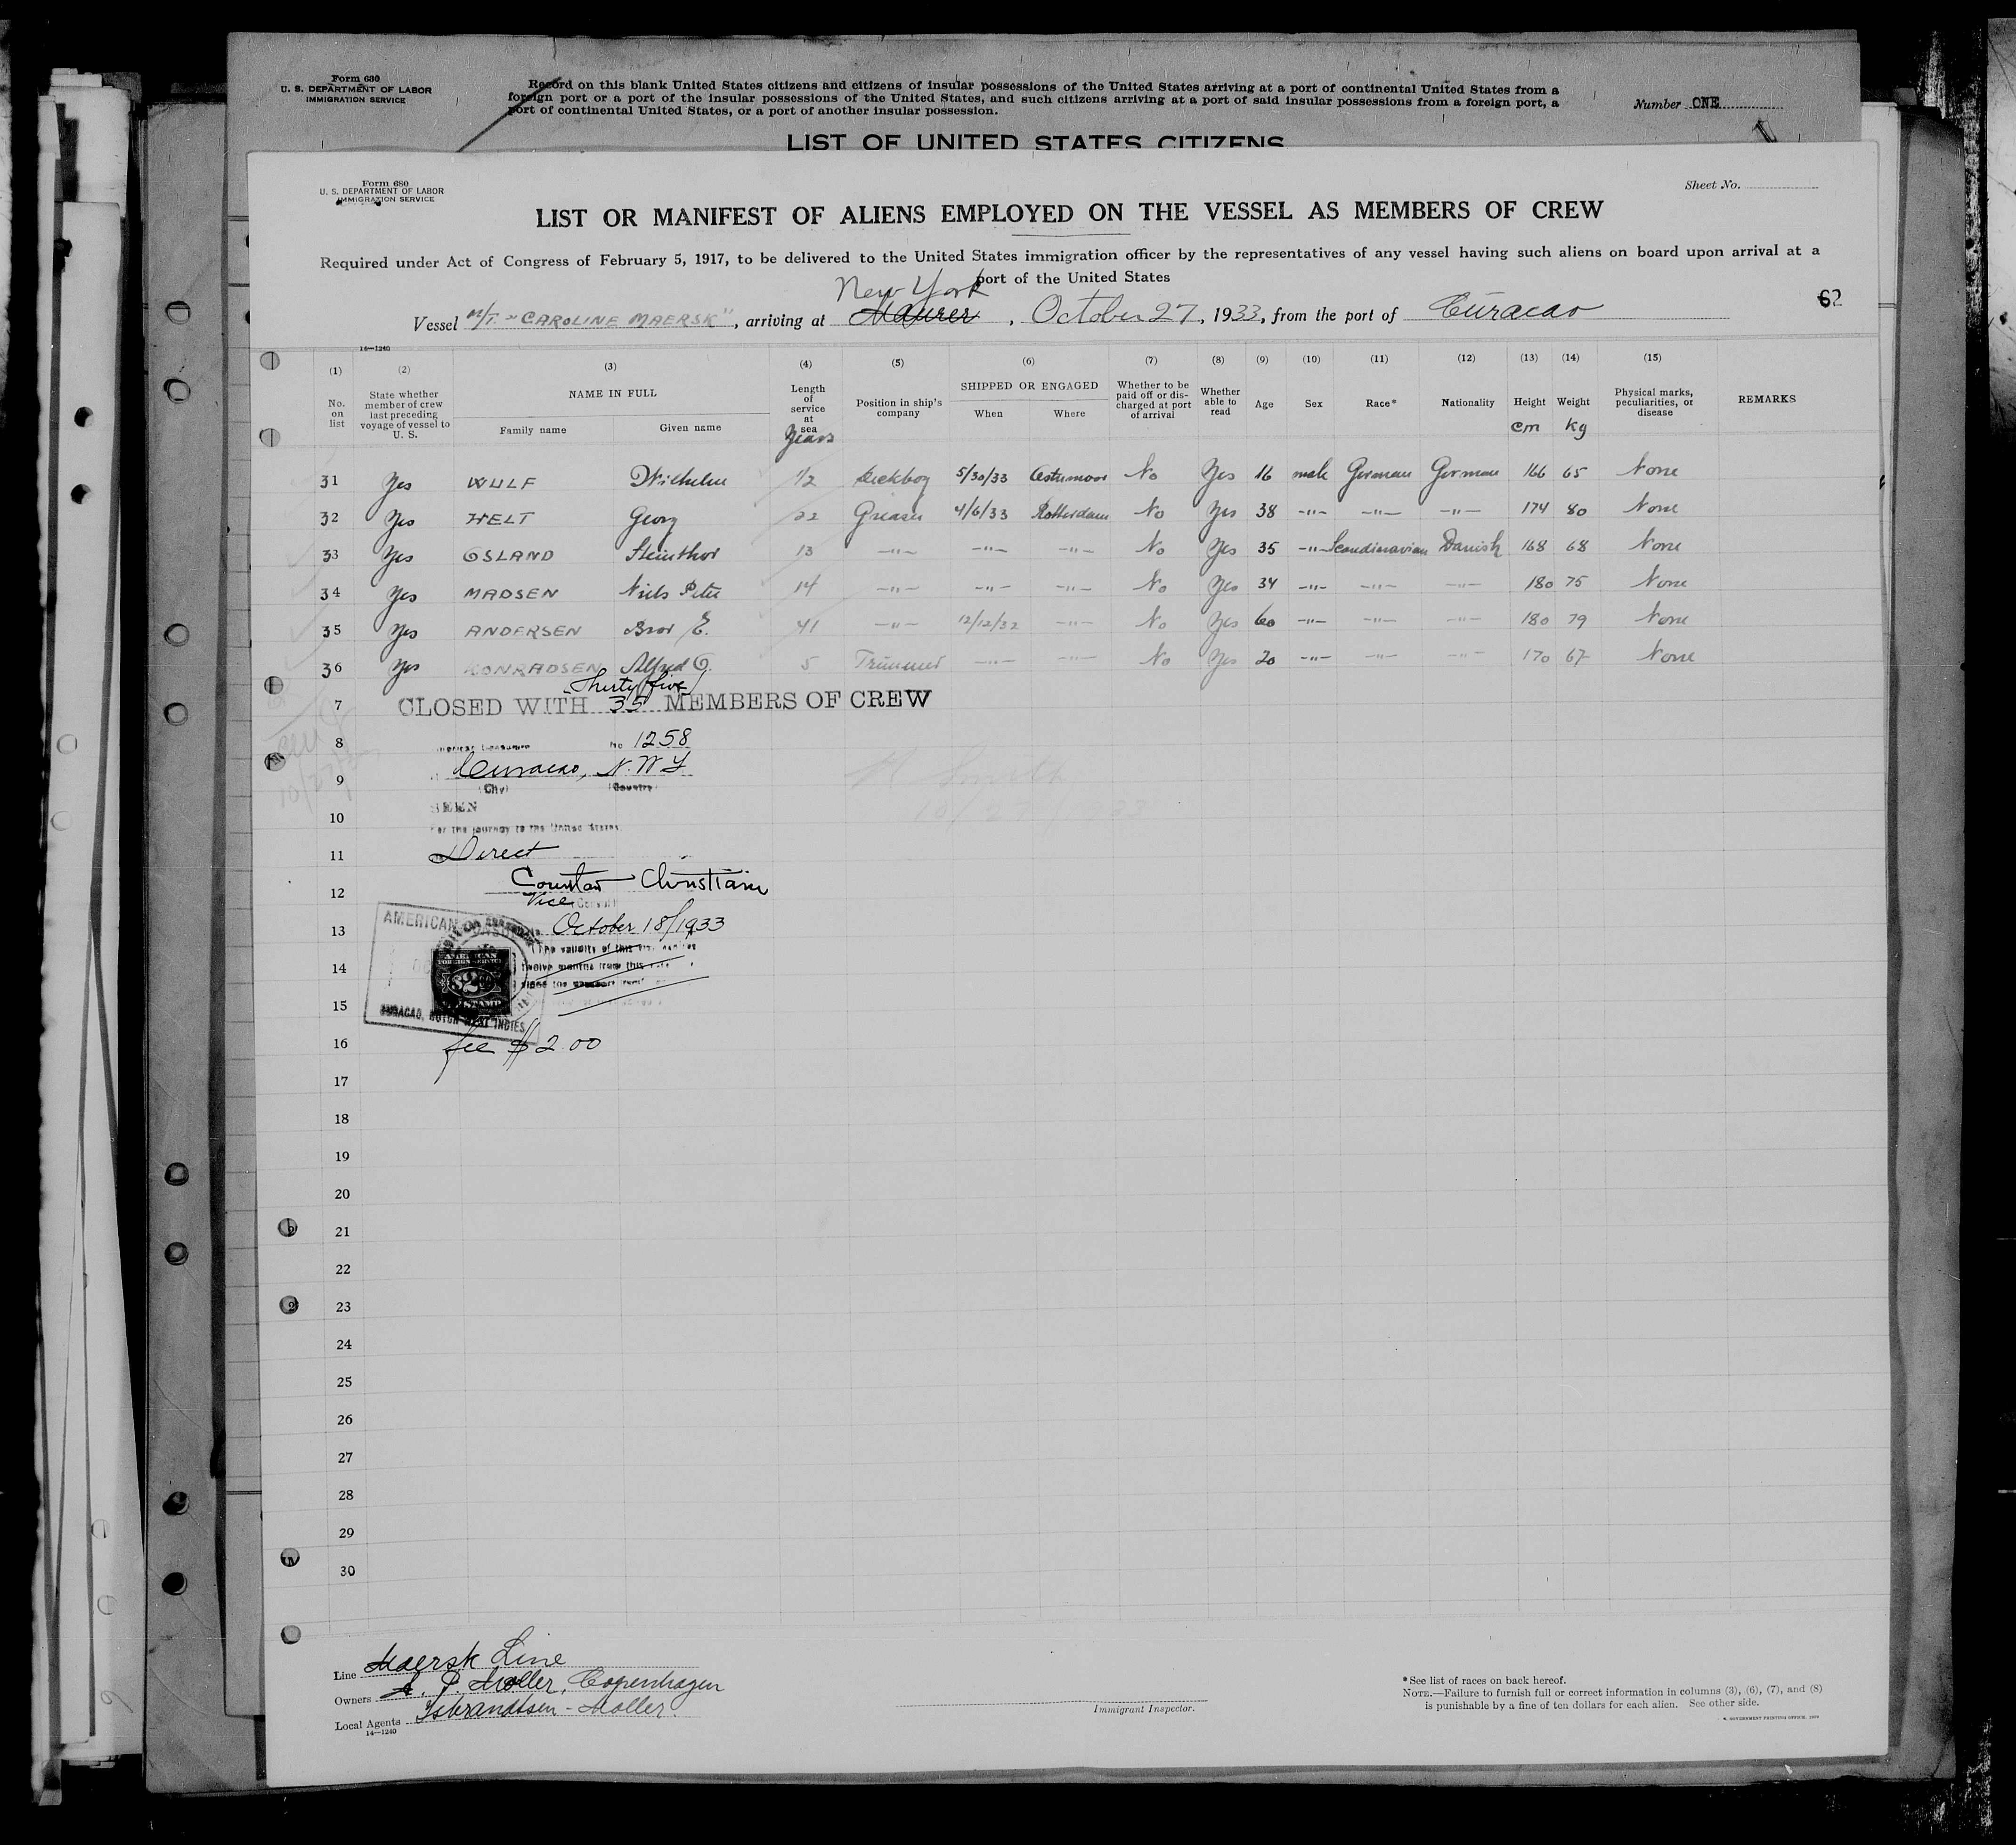 Form 630
U. S. DEPARTMENT OF LABOR
IMMIGRATION SERVICE
Record on this blank United States citizens and citizens of insular possessions of the United States arriving at a port of continental United States from a
foreign port or a port of the insular possessions of the United States, and such citizens arriving at a port of said insular possessions from a foreign port, a
port of continental United States, or a port of another insular possession.
Number ONE
LIST OF UNITED STATES CITIZENS
Form 680
U. S. DEPARTMENT OF LABOR
IMMIGRATION SERVICE
Sheet No.
LIST OR MANIFEST OF ALIENS EMPLOYED ON THE VESSEL AS MEMBERS OF CREW
Required under Act of Congress of February 5, 1917, to be delivered to the United States immigration officer by the representatives of any vessel having such aliens on board upon arrival at a
port of the United States
New York
62
Vessel M/T. "CAROLINE MAERSK", arriving at Maurer, October 27, 1933, from the port of Curacao
16—1240
(1) (2) (3) (4) (5) (6) (7) (8) (9) (10) (11) (12) (13) (14) (15)
No. on list
State whether member of crew last preceding voyage of vessel to U. S.
NAME IN FULL
Family name Given name
Length of service at sea
Years
Position in ship's company
SHIPPED OR ENGAGED
When Where
Whether to be paid off or discharged at port of arrival
Whether able to read
Age Sex Race* Nationality
Height cm
Weight kg
Physical marks, peculiarities, or disease
REMARKS
31 Yes WULF Wilhelm 1/2 Deckboy 5/30/33 Ostermoor No Yes 16 male German German 166 65 None
32 Yes HELT Georg 22 Greaser 4/6/33 Rotterdam No Yes 38 -"- -"- -"- 174 80 None
33 Yes OSLAND Steinthor 13 -"- -"- -"- No Yes 35 -"- Scandinavian Danish 168 68 None
34 Yes MADSEN Niels Peter 14 -"- -"- -"- No Yes 34 -"- -"- -"- 180 75 None
35 Yes ANDERSEN Bror E. 41 -"- 12/12/32 -"- No Yes 60 -"- -"- -"- 180 79 None
36 Yes KONRADSEN Alfred O. 5 Trimmer -"- -"- No Yes 20 -"- -"- -"- 170 67 None
Thirty five
7 CLOSED WITH 35 MEMBERS OF CREW
8 No 1258
9 Curacao, N. W I
(City) (Country)
SEEN
10 For the journey to the United States
11 Direct
12 Christian
Vice Consul
13 October 18/1933
(The validity of this visa expires
14 twelve months from this
15
16 fee $2.00
AMERICAN
AMERICAN
FOREIGN SERVICE
$2
STAMP
CURACAO, DUTCH WEST INDIES
Smith
10/27/1933
10/27/33
17
18
19
20
21
22
23
24
25
26
27
28
29
30
Line Maersk Line
Owners A. P. Moller, Copenhagen
Local Agents Isbrandtsen-Moller.
14—1240
Immigrant Inspector.
*See list of races on back hereof.
NOTE.—Failure to furnish full or correct information in columns (3), (6), (7), and (8)
is punishable by a fine of ten dollars for each alien. See other side.